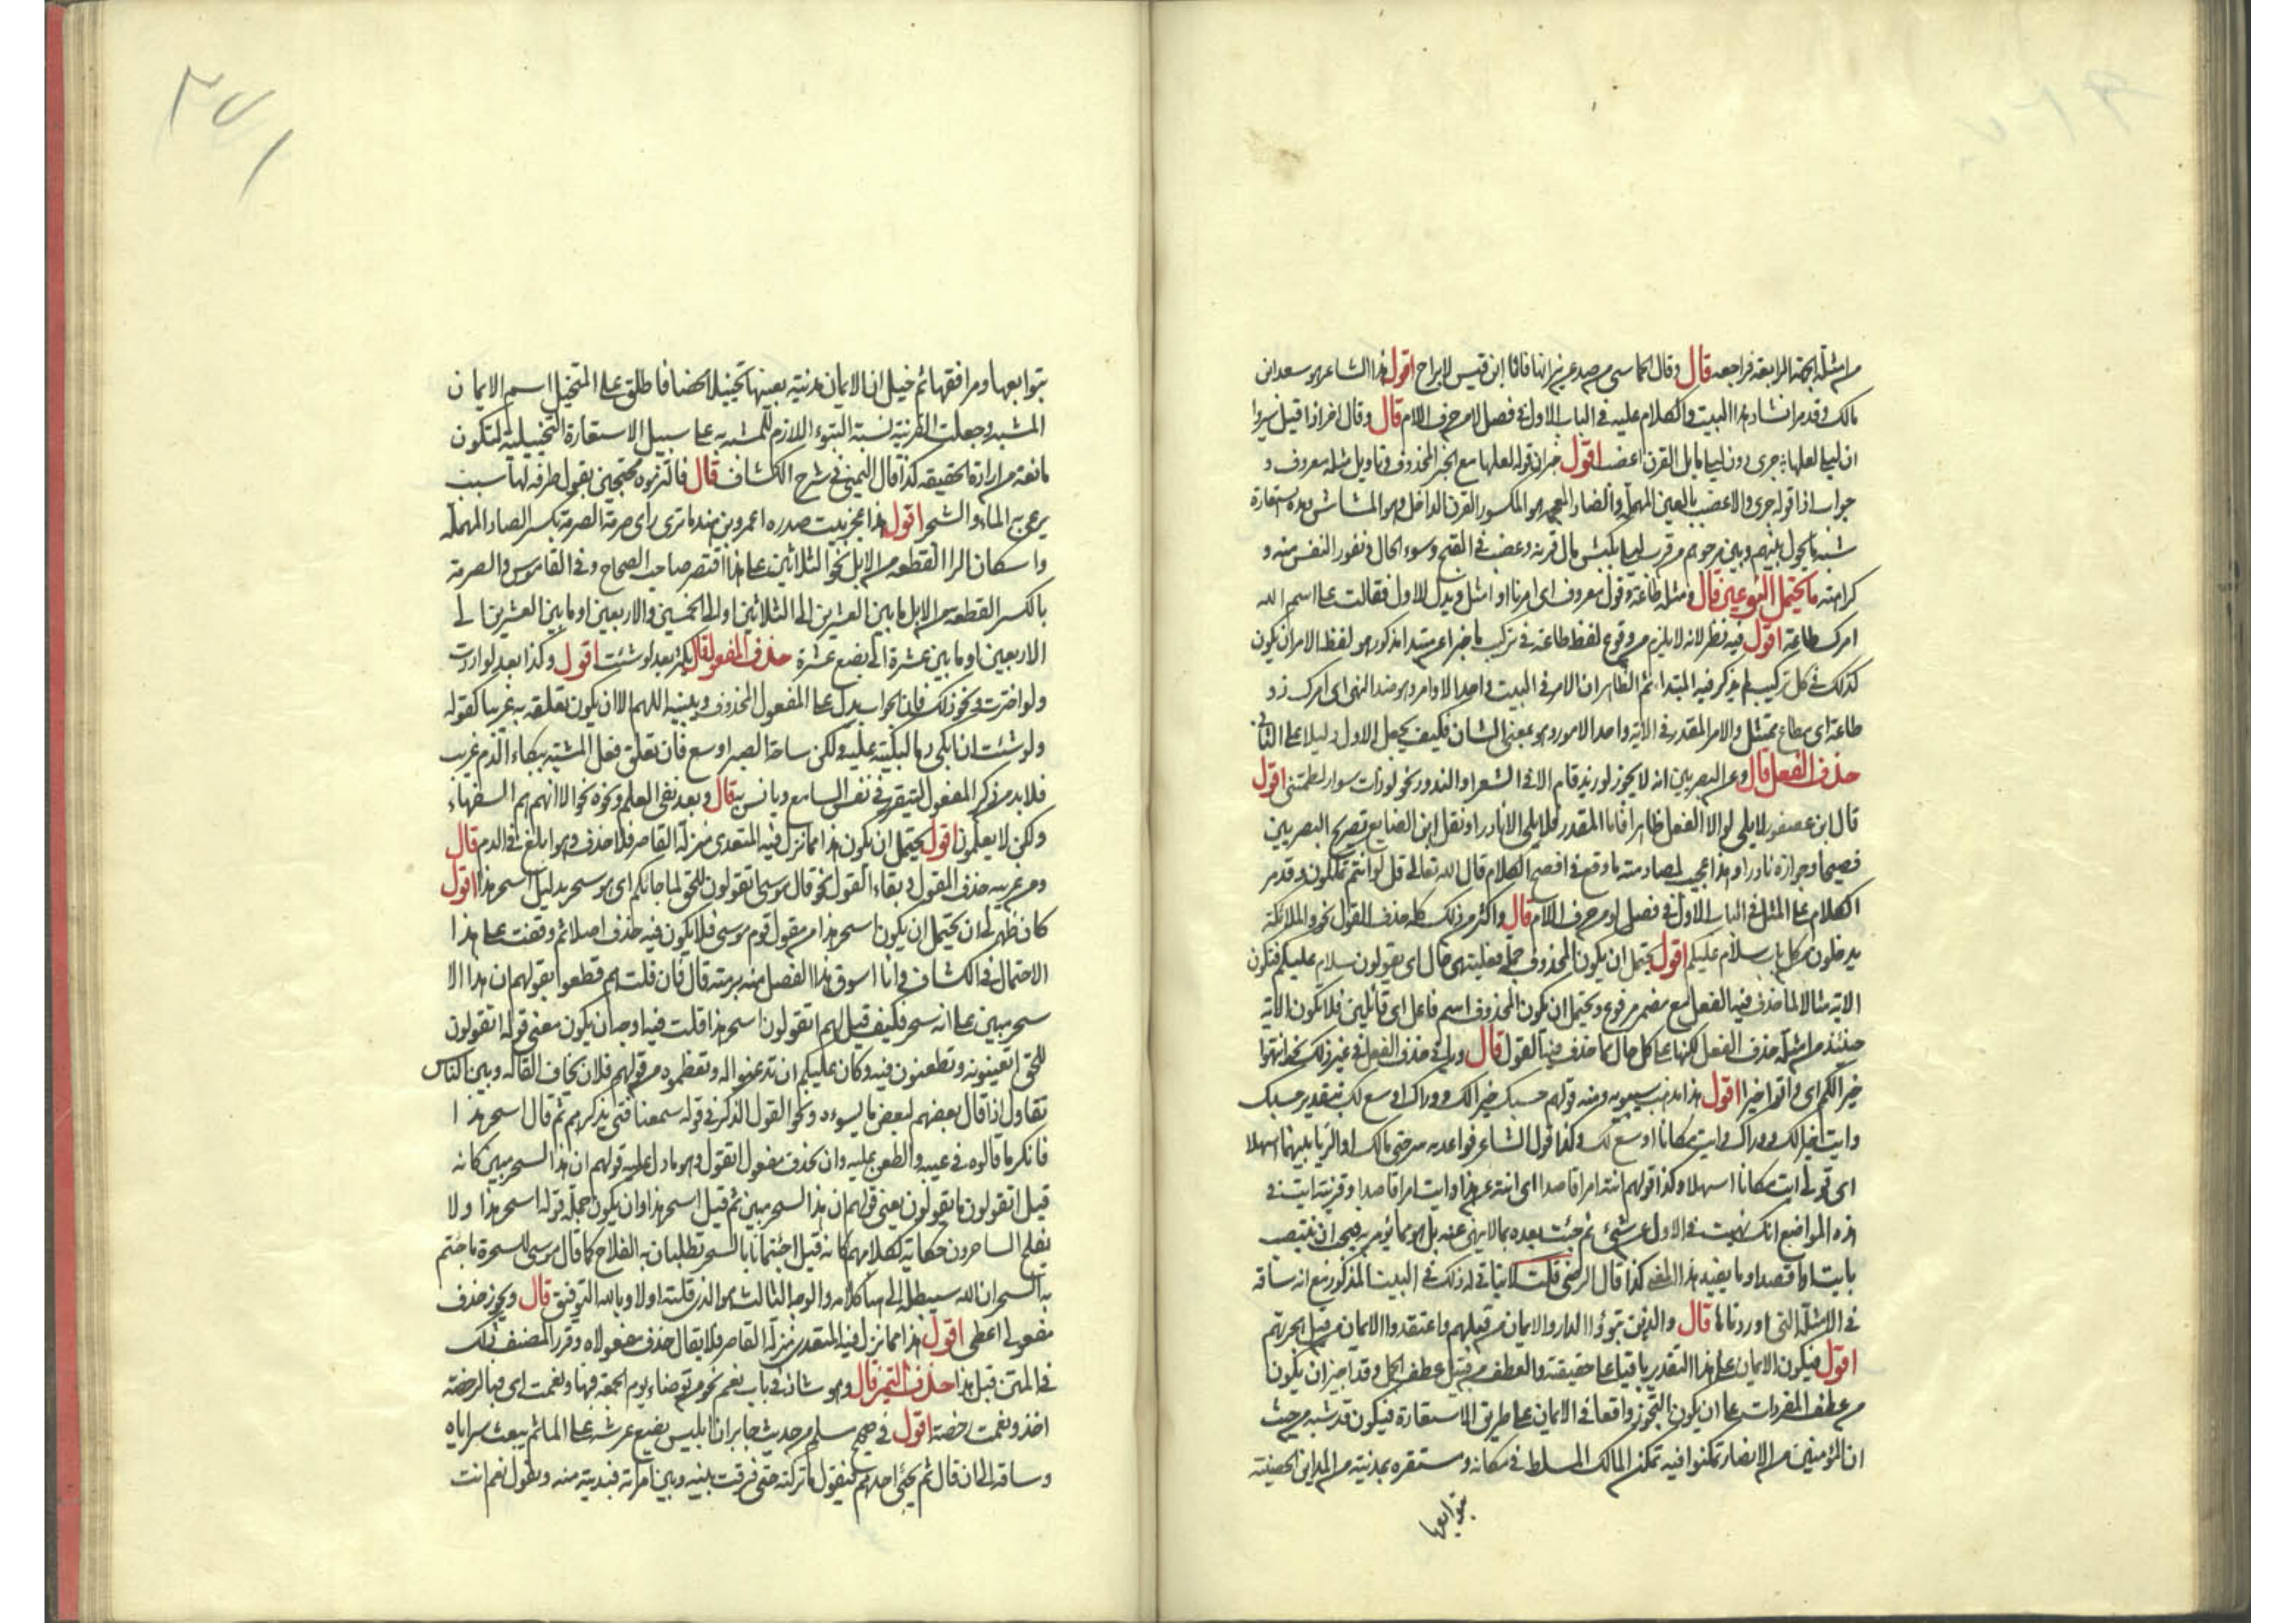 من امثلة الجهة الرابعة فراجعه قال وقال الحماسي من صد عن نيرانها فانا ابن قيس لا براح اقول هذا الشاعر هو سعد ابن
مالك وقد مر انشاد هذا البيت والكلام عليه في الباب الاول في فصل لا من حرف اللام قال وقال اخر اذا قيل سيروا
ان ليلى لعلها جرى دون ليلى مايل القرن اعضب اقول خبر ان قوله لعلها مع الخبر المحذوف وتاويل مثله معروف و
جواب اذا قوله جرى والاعضب بالعين المهملة والضاد المعجمة هو المكسور القرن الداخل وهو المشاش وهذه استعارة
شبه ما يحول بينهم وبين مرجوهم من قرب ليلى بكبش مال قرنه وعضب في القبح وسوء الحال ونفور النفس منه و
كراهته ما يحتمل النوعين قال ومثله طاعة وقول معروف اى امرنا او امثل ويدل للاول فقالت على اسم الله
امرك طاعة اقول فيه نظر لانه لا يلزم من وقوع لفظ طاعة في تركيب ما خبرا عن مبتدا مذكور هو لفظ الامر ان يكون
كذلك في كل تركيب لم يذكر فيه المبتدا ثم الظاهر ان الامر في البيت واحد الاوامر وهو ضد النهى اى امرك ذو
طاعة اى مطاع ممتثل والامر المقدر في الاية واحد الامور وهو بمعنى الشان فكيف يجعل الاول دليلا على الثاني
حذف الفعل قال وعن البصريين انه لا يجوز لو زيد قام الا في الشعر او الندور نحو لو ذات سوار لطمتني اقول
قال ابن عصفور لا يلى لو الا الفعل ظاهرا فاما المقدر فلا يلى الا نادرا ونقل ابن الضايع تصريح البصريين
فصيحا وجوازه نادرا وهذا عجيب لمصادمته ما وقع في افصح الكلام قال الله تعالى قل لو انتم تملكون وقد مر
الكلام على المثل في الباب الاول في فصل لو من حرف اللام قال واكثر من ذلك كله حذف القول نحو والملائكة
يدخلون من كل باب سلام عليكم اقول يحتمل ان يكون المحذوف جملة فعلية هي حال اى يقولون سلام عليكم فتكون
الاية مثالا لما حذف فيه الفعل مع مضمر مرفوع ويحتمل ان يكون المحذوف اسم فاعل اى قائلين فلا تكون الاية
حينئذ من امثلة حذف الفعل لكنها على كل حال مما حذف فيها القول قال وياتي حذف الفعل في غير ذلك نحو انتهوا
خيرا لكم اى واتوا خيرا اقول هذا مذهب سيبويه ومنه قولهم حسبك خيرا لك ووراك اوسع لك بتقدير حسبك
وايت خيرا لك ووراك وايت مكانا اوسع لك وكذا قول الشاعر فواعديه سرحتى مالك او الربا بينهما اسهلا
اى قولى ايت مكانا اسهلا وكذا قولهم انته امرا قاصدا اى انته عن هذا وايت امرا قاصدا وقرينة ايت في
هذه المواضع انك نهيت في الاول عن شئ ثم جئت بعده بما لا ينهى عنه بل هو مما يؤمر به فيجب ان ينتصب
بايت او اقصد او ما يفيد هذا المعنى كذا قال الرضى قلت لا يتاتى له ذلك في البيت المذكور مع انه ساقه
في الامثلة التي اوردناها قال والذين تبوؤا الدار والايمان من قبلهم واعتقدوا الايمان من قبل هجرتهم
اقول فيكون الايمان على هذا التقدير باقيا على حقيقته والعطف من قبيل عطف الجمل وقد اجيز ان يكون
من عطف المفردات على ان يكون التجوز واقعا في الايمان على طريق الاستعارة فيكون قد شبه من حيث
ان المؤمنين من الانصار تمكنوا فيه تمكن المالك المسلط في مكانه ومستقره بمدينة من المداين الحصينة
بتوابعها
٢٧١
بتوابعها ومرافقها ثم خيل ان الايمان مدينة بعينها تخييلا محضا فاطلق على المتخيل اسم الايمان
المشبه وجعلت القرينة نسبة التبوء اللازم للمشبه به على سبيل الاستعارة التخييلية لتكون
مانعة من ارادة الحقيقة كذا قال اليمني في شرح الكشاف قال فالتزموه محتجين بقول طرفة لها سبب
يرعى به الماء والشجر اقول هذا عجز بيت صدره اعمرو بن هند ما ترى راى صرمة الصرمة بكسر الصاد المهملة
واسكان الرا القطعة من الابل نحو الثلاثين على هذا اقتصر صاحب الصحاح وفي القاموس والصرمة
بالكسر القطعة من الابل ما بين العشرين الى الثلاثين او الى الخمسين والاربعين او ما بين العشرين الى
الاربعين او ما بين عشرة الى بضع عشرة حذف المفعول قال يكثر بعد لو شئت اقول وكذا بعد لو اردت
ولو اخترت ونحو ذلك فان الجواب يدل على المفعول المحذوف ويبينه اللهم الا ان يكون تعلقه به غريبا كقوله
ولو شئت ان ابكى دما لبكيته عليه ولكن ساحة الصبر اوسع فان تعلق فعل المشية ببكاء الدم غريب
فلا بد من ذكر المفعول ليتقرر في نفس السامع ويانس به قال وبعد نفى العلم ونحوه نحو الا انهم هم السفهاء
ولكن لا يعلمون اقول يحتمل ان يكون هذا مما نزل فيه المتعدى منزلة القاصر فلا حذف وهو ابلغ في الذم قال
ومن غريبه حذف المقول وبقاء القول نحو قال موسى اتقولون للحق لما جاءكم اى هو سحر بدليل اسحر هذا اقول
كان ظهر لى ان يحتمل ان يكون اسحر هذا من مقول قوم موسى فلا يكون فيه حذف اصلا ثم وقفت على هذا
الاحتمال في الكشاف وانا اسوق هذا الفصل منه برمته قال فان قلت هم قطعوا بقولهم ان هذا الا
سحر مبين على انه سحر فكيف قيل لهم اتقولون اسحر هذا قلت فيه اوجه ان يكون معنى قوله اتقولون
للحق اتعيبونه وتطعنون فيه وكان عليكم ان تذعنوا له وتعظموه من قولهم فلان يخاف القالة وبين الناس
تقاول اذا قال بعضهم لبعض ما يسوءه ونحو القول الذكر في قوله سمعنا فتى يذكرهم ثم قال اسحر هذا
فانكر ما قالوه في عيبه والطعن عليه وان يحذف مفعول اتقولون وهو ما دل عليه قولهم ان هذا لسحر مبين كانه
قيل اتقولون ما تقولون يعنى قولهم ان هذا لسحر مبين ثم قيل اسحر هذا وان يكون جملة قوله اسحر هذا ولا
يفلح الساحرون حكاية لكلامهم كانه قيل اجئتمانا بالسحر تطلبان به الفلاح كما قال موسى للسحرة ما جئتم
به السحر ان الله سيبطله الى هنا كلامه والوجه الثالث هو الذي قلته اولا وبالله التوفيق قال ويجوز حذف
مفعولى اعطى اقول هذا مما نزل فيه المتعدى منزلة القاصر فلا يقال حذف مفعولاه وقرر المصنف ذلك
في المتن قبل هذا حذف التمييز قال وهو شاذ في باب نعم نحو من توضاء يوم الجمعة فبها ونعمت اى فبالرخصة
اخذ ونعمت رخصة اقول في صحيح مسلم من حديث جابر ان ابليس يضع عرشه على الماء ثم يبعث سراياه
وساقه الى ان قال ثم يجئ احدهم فيقول ما تركته حتى فرقت بينه وبين امراته فيدنيه منه ويقول نعم انت